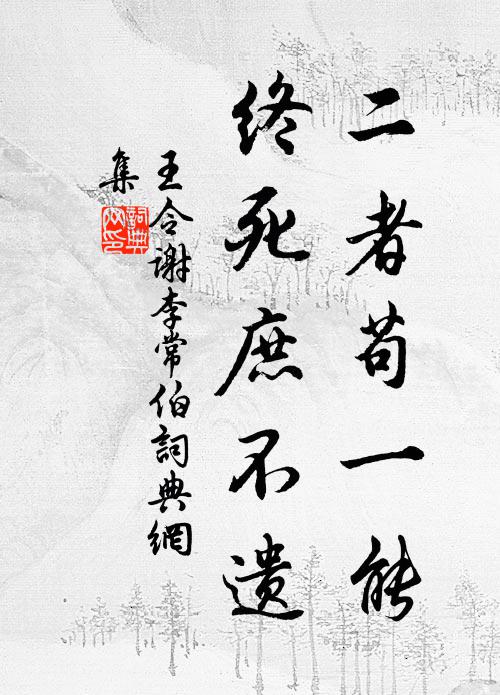 二者苟一能
终死庶不遗
王令谢李常伯詞典網
集
詞典
网印